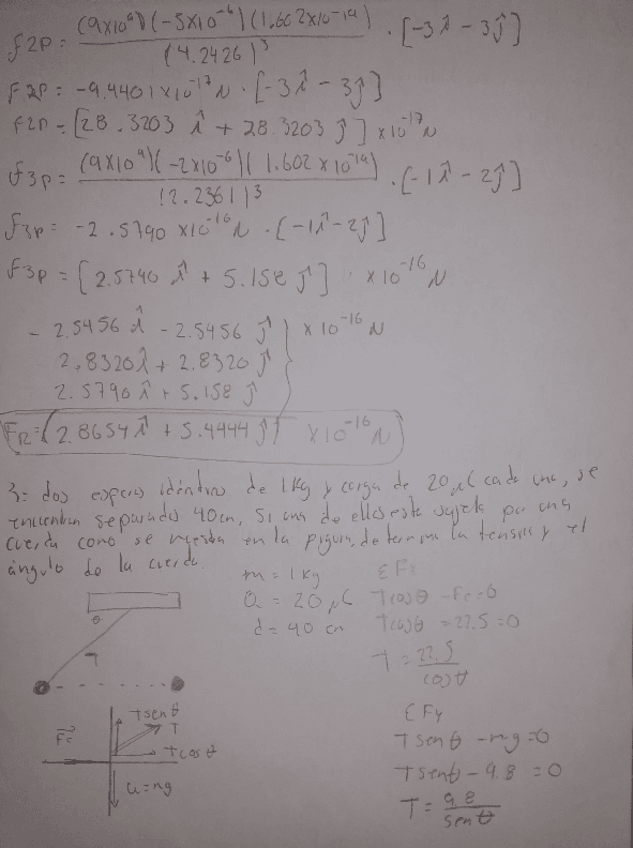 f2p = (9x10⁹)(-5x10⁻⁶)(1.602x10⁻¹⁹) / (4.2426)³ · [-3î - 3ĵ]
f2p = -9.4401x10⁻¹⁷N · [-3î - 3ĵ]
f2p = [28.3203 î + 28.3203 ĵ] x10⁻¹⁷N
f3p = (9x10⁹)(-2x10⁻⁶)(1.602x10⁻¹⁹) / (2.2361)³ · [-1î - 2ĵ]
f3p = -2.5790 x10⁻¹⁶N · [-1î - 2ĵ]
f3p = [2.5790 î + 5.158 ĵ] x10⁻¹⁶N
- 2.5456 î - 2.5456 ĵ } x10⁻¹⁶N
2.8320î + 2.8320 ĵ
2.5790 î + 5.158 ĵ
FR = (2.8654 î + 5.4444 ĵ) x10⁻¹⁶N
3= dos esperas idénticas de 1Kg y carga de 20 µC cada una, se
encuentran separadas 40cm, si una de ellas esta sujeta por una
cuerda como se muestra en la figura, determina la tension y el
ángulo de la cuerda.
m = 1 kg
Q = 20 µC
d = 40 cm
θ
T
Fc
Tsen θ
T
Tcos θ
w=mg
ΣFx
Tcosθ - Fc = 0
Tcosθ - 22.5 = 0
T = 22.5 / cosθ
ΣFy
Tsenθ - mg = 0
Tsenθ - 9.8 = 0
T = 9.8 / senθ